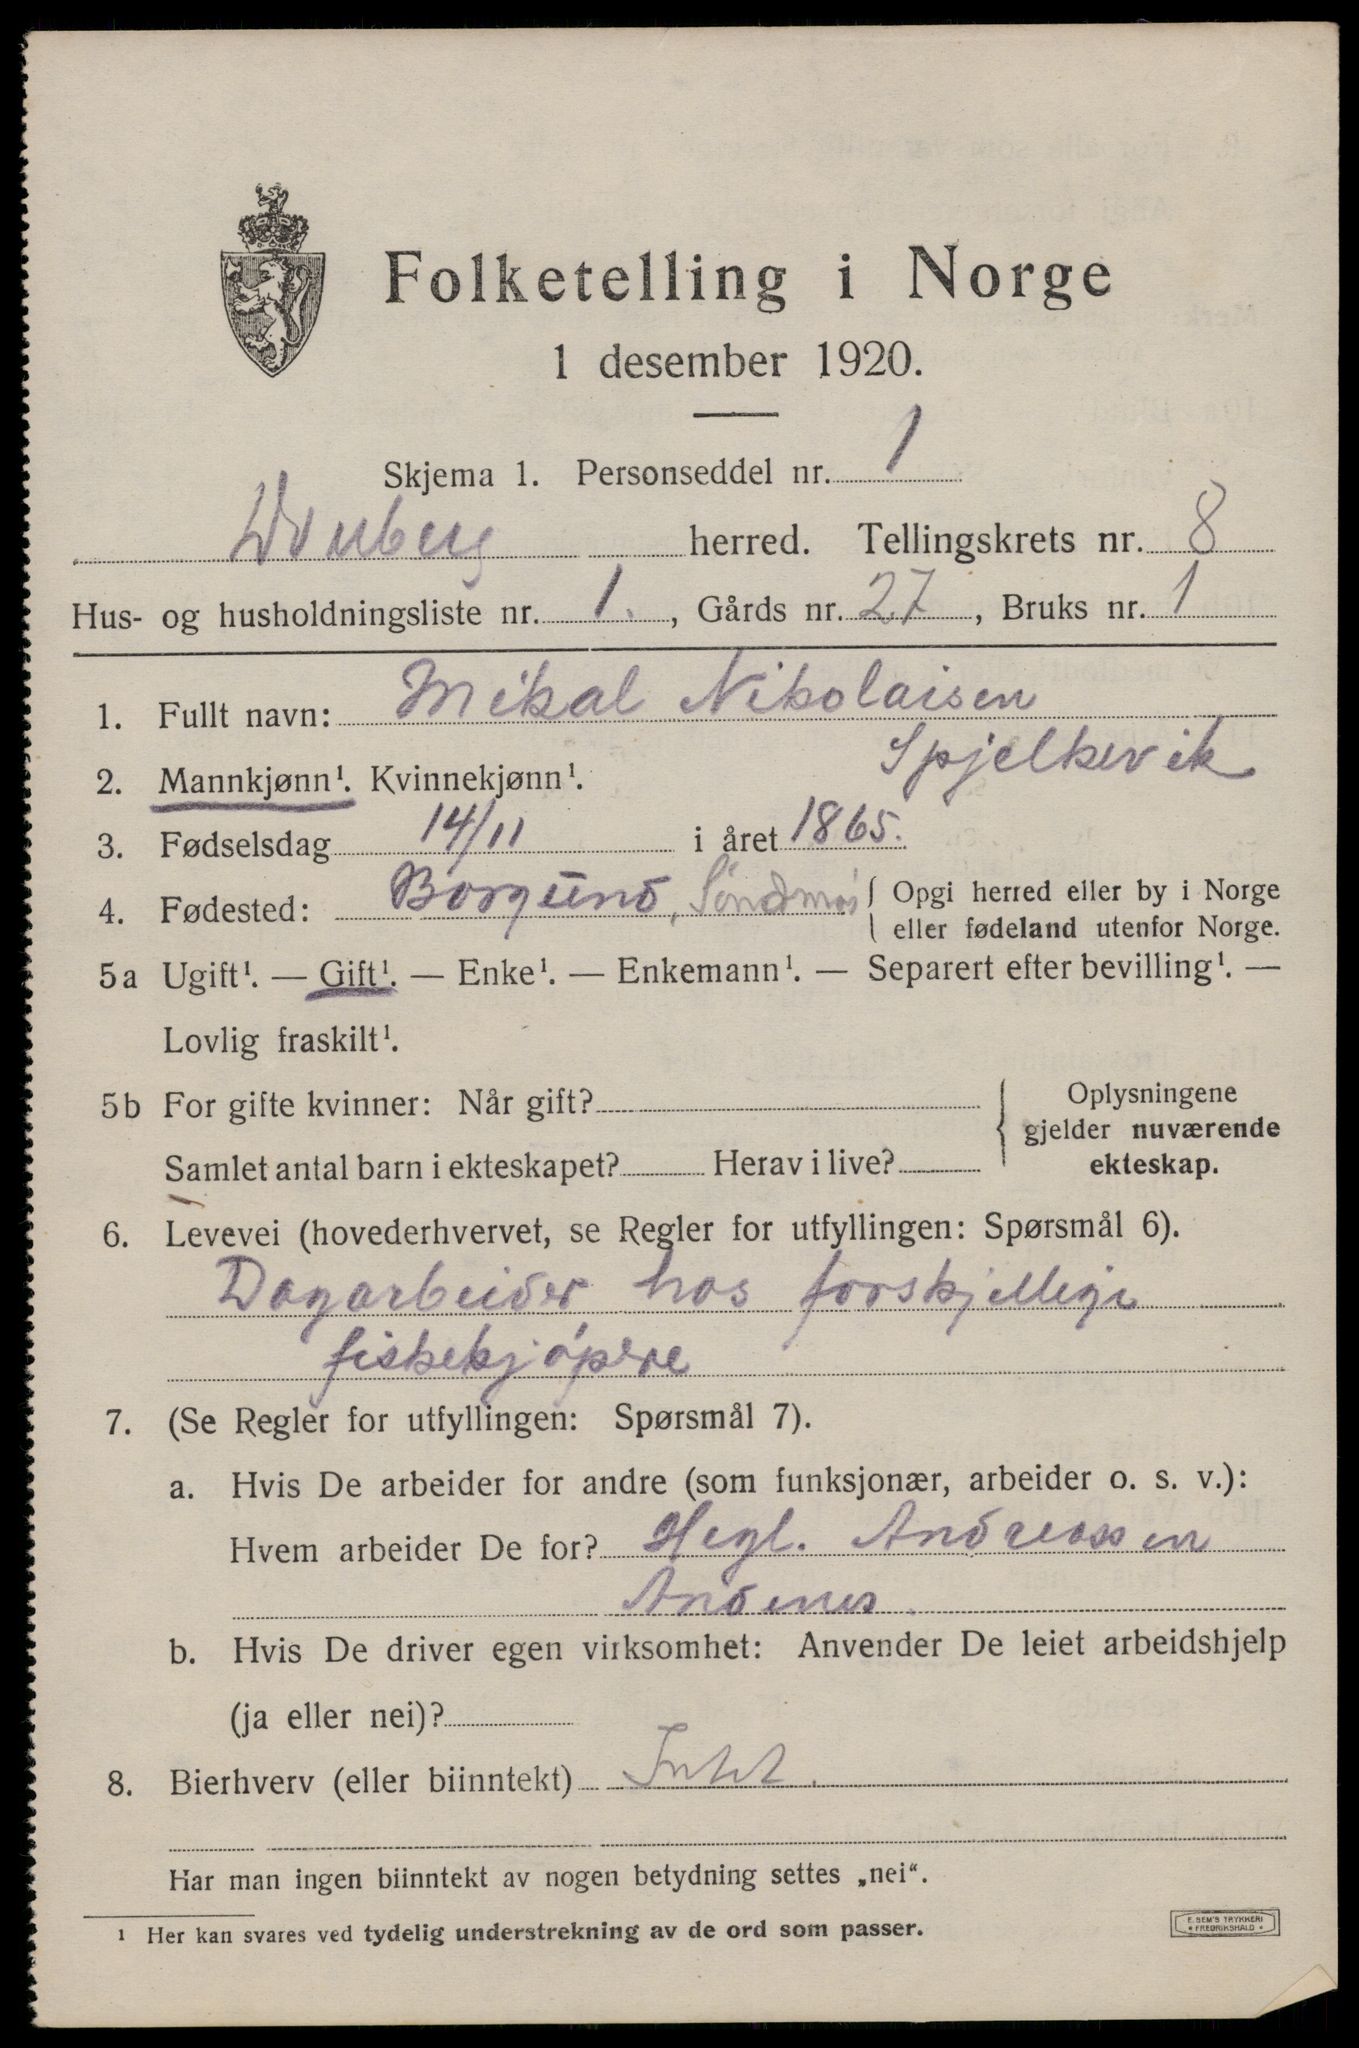 Folketelling i Norge
1 desember 1920.
Skjema 1. Personseddel nr. 1
herred. Tellingskrets nr. 8
Hus- og husholdningsliste nr. 1. , Gårds nr. 27 , Bruks nr. 1
1. Fullt navn: Mikal Nikolaisen
Spjelkevik
2. Mannkjønn¹. Kvinnekjønn¹.
3. Fødselsdag 14/11 i året 1865.
4. Fødested: Borgund, Søndmør { Opgi herred eller by i Norge
eller fødeland utenfor Norge.
5a Ugift¹. — Gift¹. — Enke¹. — Enkemann¹. — Separert efter bevilling¹. —
Lovlig fraskilt¹.
5b For gifte kvinner: Når gift?
Samlet antal barn i ekteskapet? Herav i live?
{ Oplysningene
gjelder nuværende
ekteskap.
6. Levevei (hovederhvervet, se Regler for utfyllingen: Spørsmål 6).
Dagarbeider hos forskjellige
fiskekjøpere
7. (Se Regler for utfyllingen: Spørsmål 7).
a. Hvis De arbeider for andre (som funksjonær, arbeider o. s. v.):
Hvem arbeider De for? Hegl. Andreassen
Andenes.
b. Hvis De driver egen virksomhet: Anvender De leiet arbeidshjelp
(ja eller nei)?
8. Bierhverv (eller biinntekt)
Har man ingen biinntekt av nogen betydning settes „nei“.
¹ Her kan svares ved tydelig understrekning av de ord som passer.
E. SEM'S TRYKKERI
* FREDRIKSHALD *